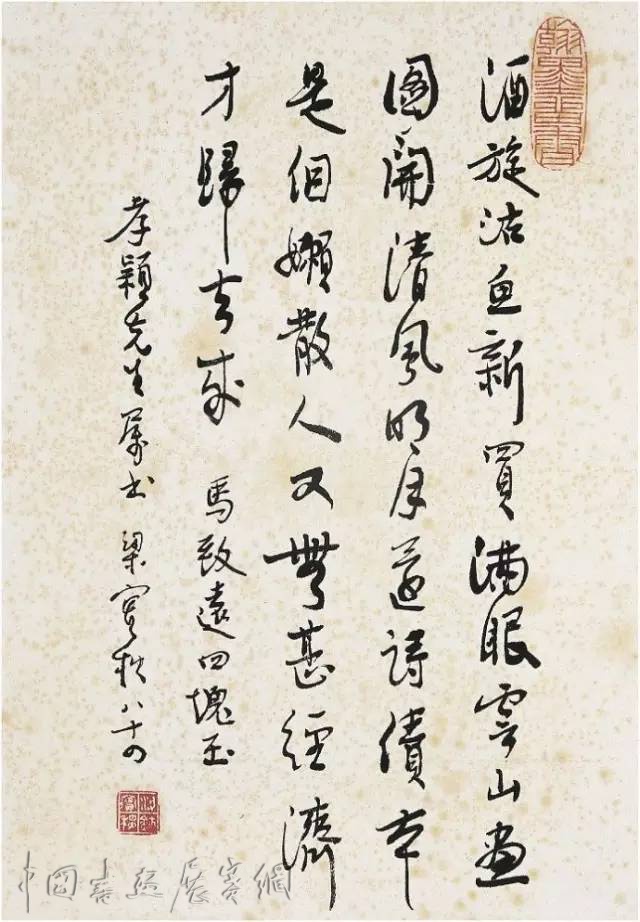 酒旋沽魚新買滿眼雲山畫
圖開清風明月還詩債本
是個懶散人又無甚經濟
才歸去來
馬致遠四塊玉
孝穎先生屬書 梁實秋 八十四
翰墨生香
中國書法展賽網